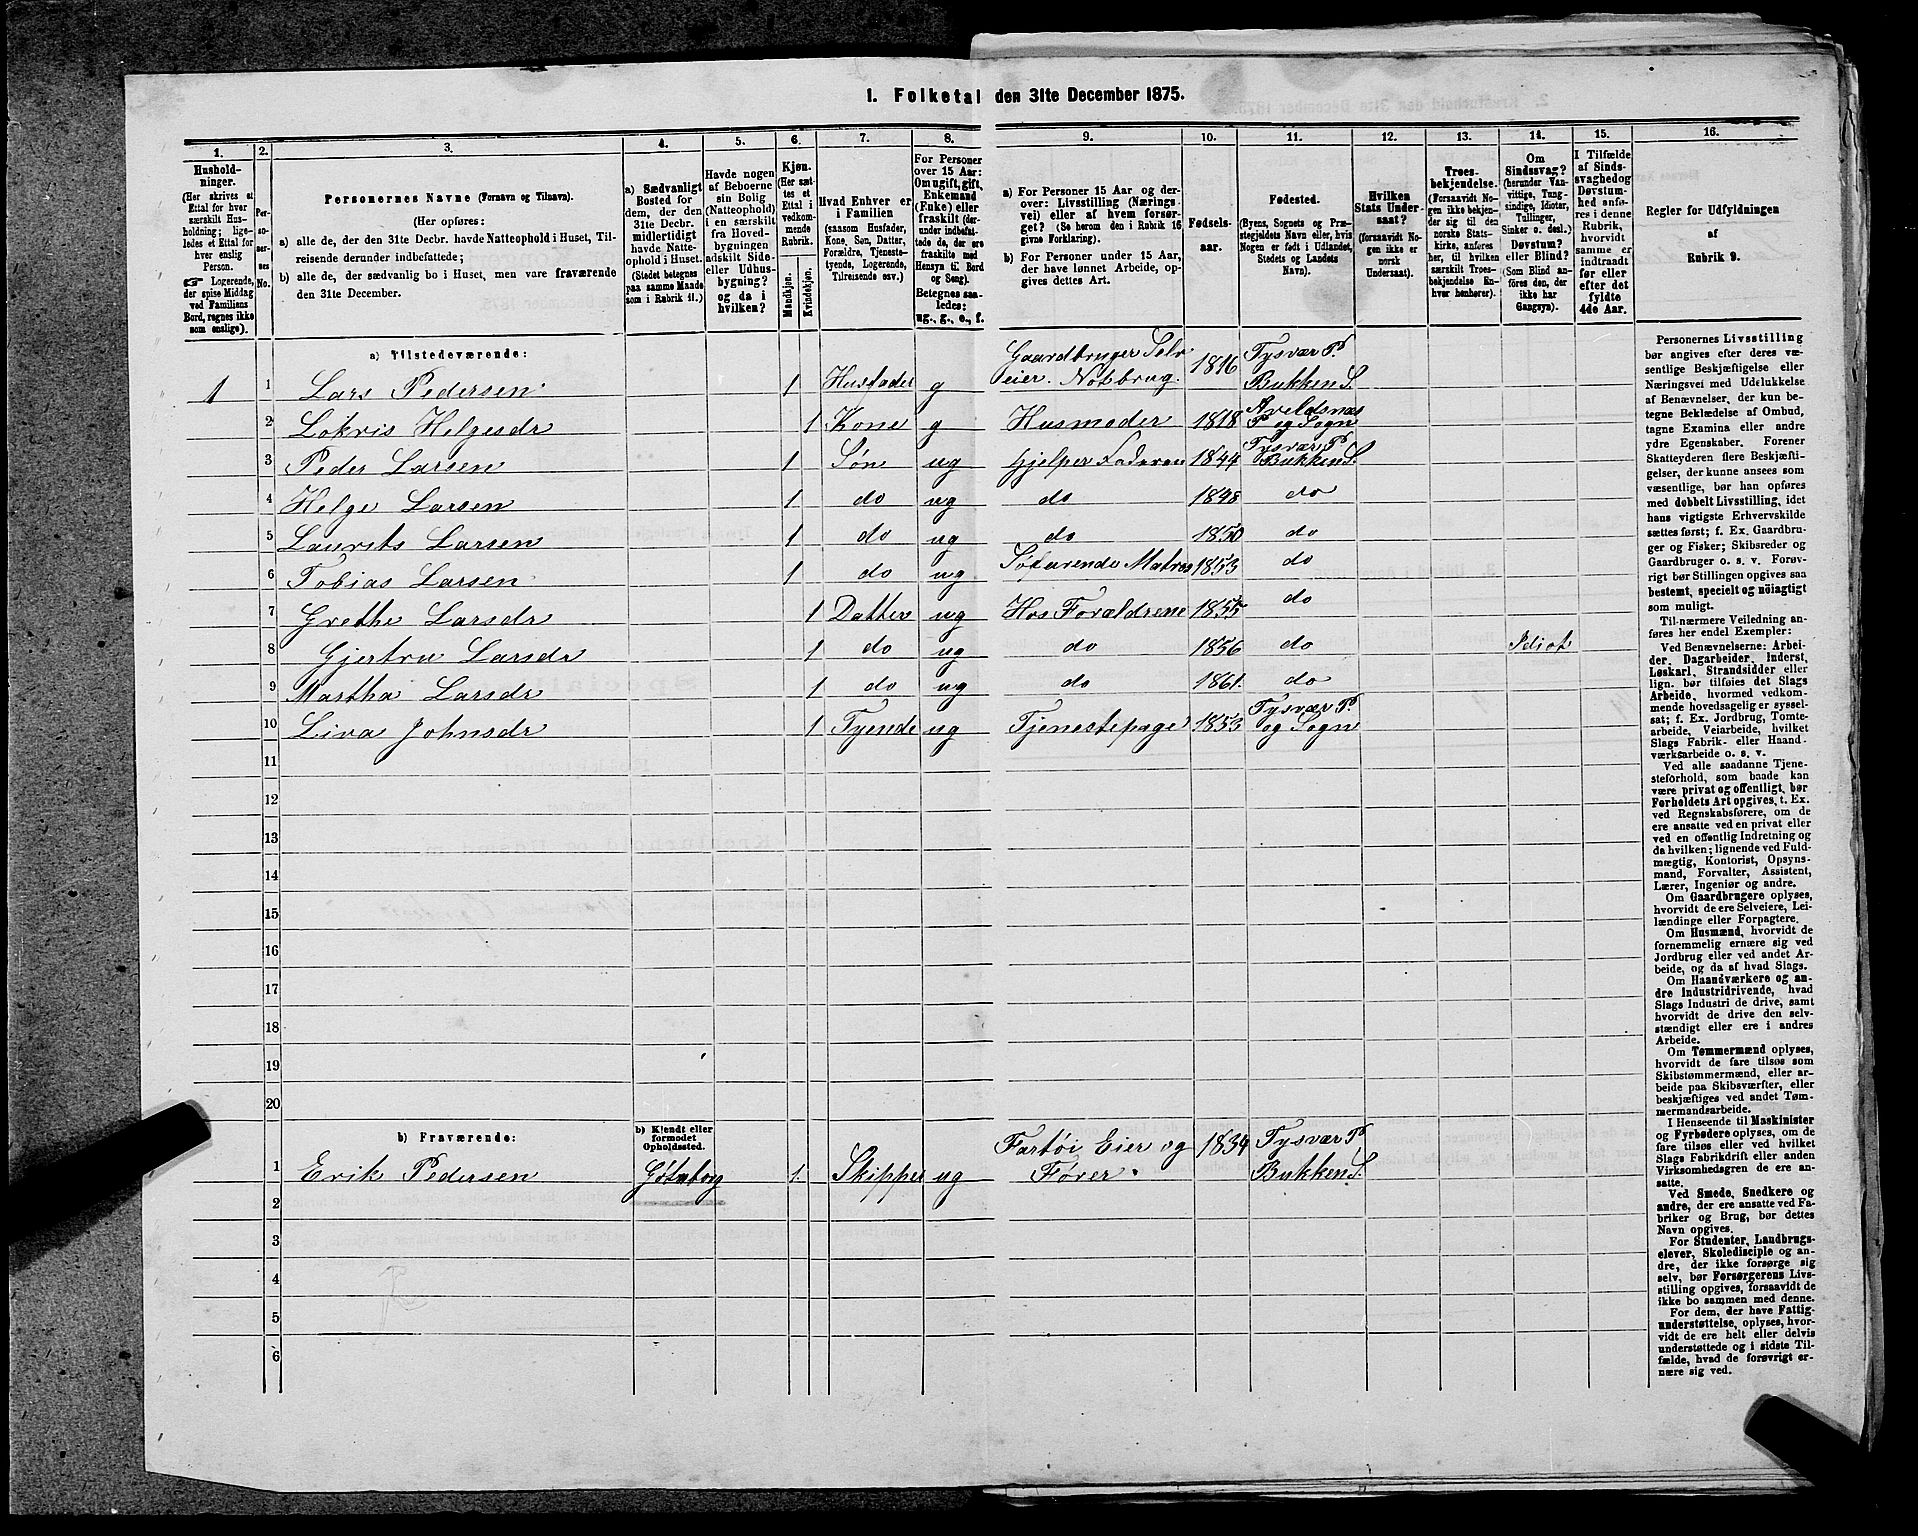 1. Folketal den 31te December 1875.
1.
2.
3.
4.
5.
6.
7.
8.
9.
10.
11.
12.
13.
14.
15.
16.
Hushold-
ninger.
(Her skrives et
Ettal for hver
særskilt Hus-
holdning; lige-
ledes et Ettal for
hver enslig
Person.
☞ Logerende,
der spise Middag
ved Familiens
Bord, regnes ikke
som enslige).
Per-
so-
ner-
nes
No.
Personernes Navne (Fornavn og Tilnavn).
(Her opføres:
a) alle de, der den 31te Decbr. havde Natteophold i Huset, Til-
reisende derunder indbefattede;
b) alle de, der sædvanlig bo i Huset, men vare fraværende
den 31te December.
a) Sædvanligt
Bosted for
dem, der den
31te Decbr.
midlertidigt
havde Natte-
ophold i Huset.
(Stedet betegnes
paa samme Maade
som i Rubrik 11.)
Havde nogen
af Beboerne
sin Bolig
(Natteophold)
i en særskilt
fra Hoved-
bygningen
adskilt Side-
eller Udhus-
bygning?
og da i
hvilken?
Kjøn.
(Her sæt-
tes et
Ettal i
vedkom-
mende
Rubrik.
Mandkjøn.
Kvindekjøn.
Hvad Enhver er
i Familien
(saasom Husfader,
Kone, Søn, Datter,
Forældre, Tjeneste-
tyende, Logerende,
Tilreisende osv.)
For Personer
over 15 Aar:
Om ugift, gift,
Enkemand
(Enke) eller
fraskilt (der-
under indbefat-
tede de, der ere
fraskilte med
Hensyn til Bord
og Seng).
Betegnes saa-
ledes:
ug., g., e., f.
a) For Personer 15 Aar og der-
over: Livsstilling (Nærings-
vei) eller af hvem forsør-
get? (Se herom den i Rubrik 16
givne Forklaring).
b) For Personer under 15 Aar,
der have lønnet Arbeide, op-
gives dettes Art.
Fødsels-
aar.
Fødested.
(Byens, Sognets og Præ-
stegjeldets Navn eller, hvis
Nogen er født i Udlandet,
Stedets og Landets
Navn).
Hvilken
Stats Under-
saat?
(forsaavidt No-
gen ikke er
norsk
Undersaat).
Troes-
bekjendelse.
(Forsaavidt No-
gen ikke bekjen-
der sig til den
norske Stats-
kirke, anføres
her, til hvilken
særskilt Troes-
bekjendelse En-
hver henhører).
Om
Sindssvag?
(herunder Van-
vittige, Tung-
sindige, Idioter,
Tullinger,
Sinker o. desl.)
Døvstum?
eller Blind?
(Som Blind an-
føres den, der
ikke har
Gangsyn).
I Tilfælde
af Sinds-
svaghed og
Døvstum-
hed anfø-
res i denne
Rubrik,
hvorvidt
samme er
indtraadt
før eller
efter det
fyldte
4de Aar.
Regler for Udfyldningen
af
Rubrik 9.
a) Tilstedeværende:
1 1 Lars Pedersen 1 Husfader g Gaardbruger Selv eier. Notbrug. 1816 Tysvær P. Bukken S.
2 Lokris Helgesdr 1 Kone g Husmoder 1818 Avaldsnæs P. og Sogn
3 Peder Larsen 1 Søn ug Hjelper Faderen 1844 Tysvær P. Bukken S.
4 Helge Larsen 1 do ug do 1848 do
5 Laurits Larsen 1 do ug do 1850 do
6 Tobias Larsen 1 do ug Søfarende Matros 1853 do
7 Grethe Larsdr 1 Datter ug Hos Forældrene 1855 do
8 Gjertru Larsdr 1 do ug do 1856 do Idiot
9 Martha Larsdr 1 do ug do 1861. do
10 Liva Johnsdr 1 Tyende ug Tjenestepige 1853 Tysvær P. og Sogn
11
12
13
14
15
16
17
18
19
20
b) Fraværende:
b) Kjendt eller
formodet
Opholdssted.
1 Erik Pedersen Gøteborg 1. Skipper ug Fartøi Eier og Fører. 1834 Tysvær P. Bukken S.
2
3
4
5
6
Personernes Livsstilling
bør angives efter deres væ-
sentlige Beskjæftigelse eller
Næringsvei med Udelukkelse
af Benævnelser, der kun be-
tegne Beklædelse af Ombud,
tagne Examina eller andre
ydre Egenskaber. Forener
Skatteyderen flere Beskjæfti-
gelser, der kunne ansees som
væsentlige, bør han opføres
med dobbelt Livsstilling, idet
hans vigtigste Erhvervskilde
sættes først; f. Ex. Gaardbru-
ger og Fisker; Skibsreder og
Gaardbruger o. s. v. Forøv-
rigt bør Stillingen opgives saa
bestemt, specielt og nøiagtigt
som muligt.
Til nærmere Veiledning an-
føres her endel Exempler:
Ved Benævnelserne: Arbei-
der, Dagarbeider, Inderst,
Løskarl, Strandsidder eller
lign. bør tilføies det Slags
Arbeide, hvormed vedkom-
mende hovedsagelig er syssel-
sat; f. Ex. Jordbrug, Tomte-
arbeide, Veiarbeide, hvilket
Slags Fabrik- eller Haand-
værksarbeide o. s. v.
Ved alle saadanne Tjene-
steforhold, som baade kan
være privat og offentligt, bør
Forholdets Art opgives, t. Ex.
ved Regnskabsførere, om de
ere ansatte ved en privat eller
ved en offentlig Indretning og
da hvilken; lignende ved Fuld-
mægtig, Kontorist, Opsyns-
mand, Forvalter, Assistent,
Lærer, Ingeniør og andre.
Om Gaardbrugere oplyses,
hvorvidt de ere Selveiere, Lei-
lændinge eller Forpagtere.
Om Husmænd, hvorvidt de
fornemmelig ernære sig ved
Jordbrug eller ved andet Ar-
beide, og da af hvad Slags.
Om Haandværkere og an-
dre Industridrivende, hvad
Slags Industri de drive, samt
hvorvidt de drive den selv-
stændigt eller ere i andres
Arbeide.
Om Tømmermænd oplyses,
hvorvidt de fare tilsøs som
Skibstømmermænd, eller ar-
beide paa Skibsværfter, eller
beskjæftiges ved andet Tøm-
mermandsarbeide.
I Henseende til Maskinister
og Fyrbødere oplyses, om de
fare tilsøs eller ved hvilket
Slags Fabrikdrift eller anden
Virksomhedsgren de ere an-
satte.
Ved Smede, Snedkere og
andre, der ere ansatte ved Fa-
briker og Brug, bør dettes
Navn opgives.
For Studenter, Landbrugs-
elever, Skoledisciple og an-
dre, der ikke forsørge sig
selv, bør Forsørgerens Livs-
stilling opgives, forsaavidt de
ikke bo sammen med denne.
For dem, der have Fattig-
understøttelse, oplyses, hvor-
vidt de ere helt eller delvis
understøttede og i sidste Til-
fælde, hvad de forøvrigt er-
nære sig ved.